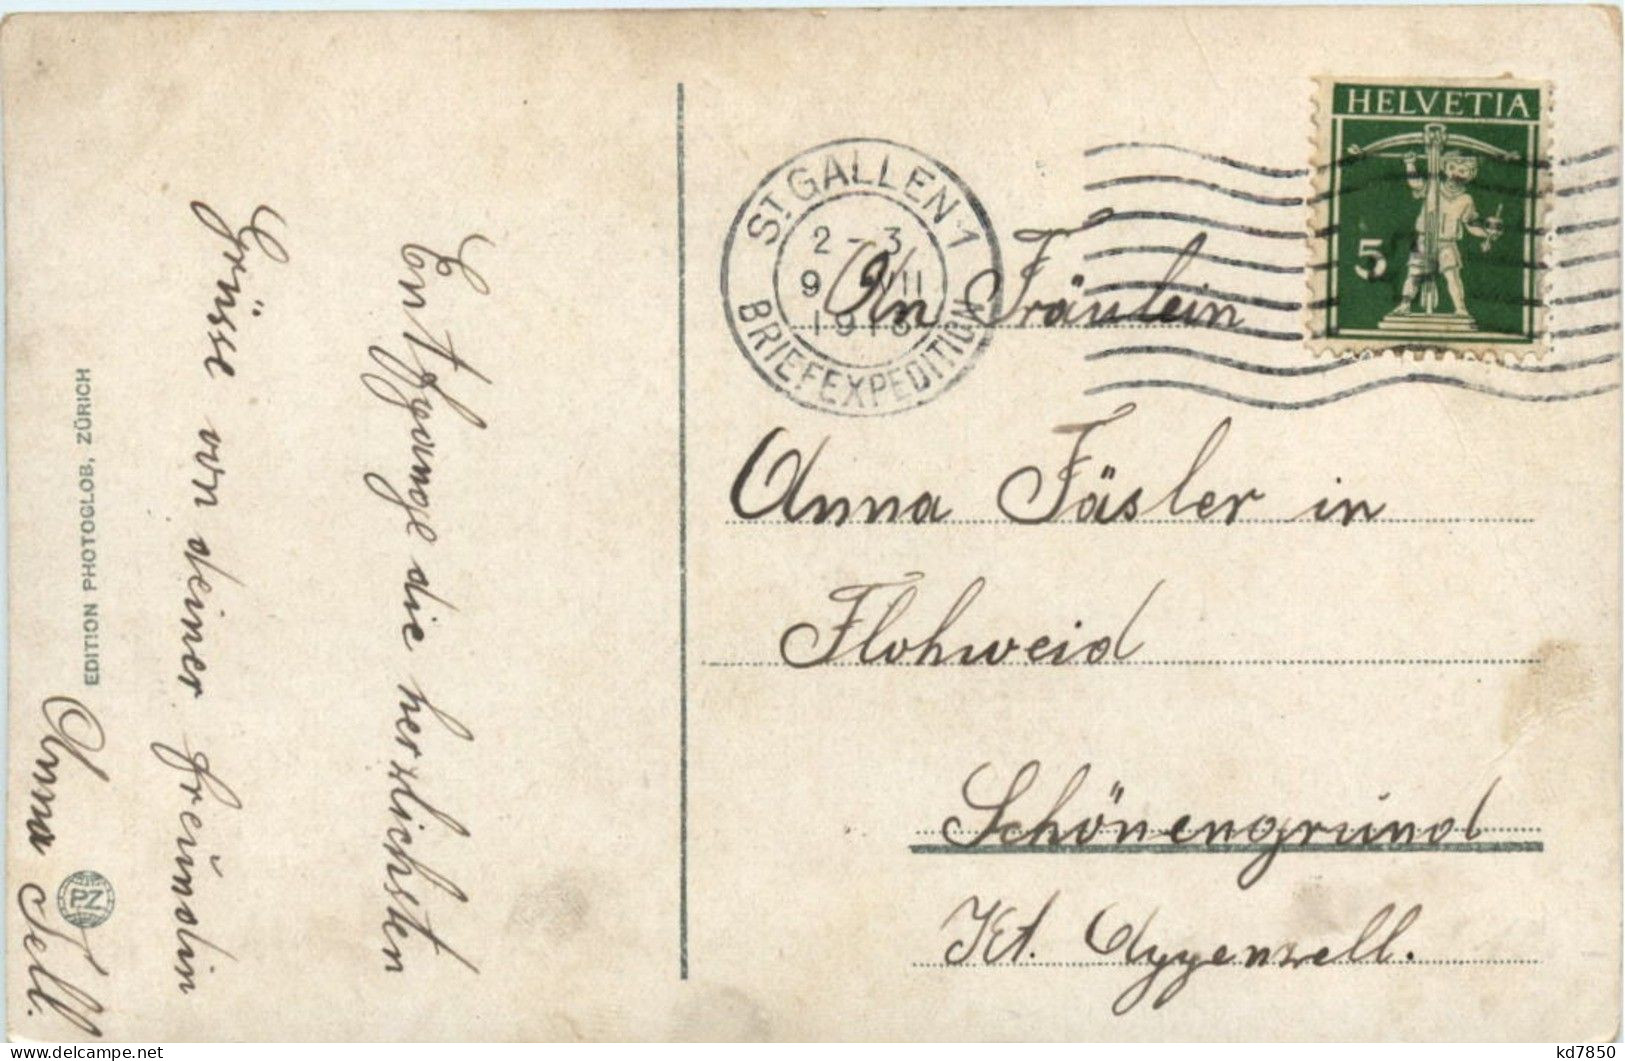 Entpfange die herzlichsten
Grüsse von deiner freundin
Anna Tell.
EDITION PHOTOGLOB, ZÜRICH
PZ
ST GALLEN 1
2-3
9 VII
BRIEFEXPEDITION
HELVETIA
5
An Fräulein
Anna Fäsler in
Flohweid
Schönengrund
Kt. Appenzell.
kd7850